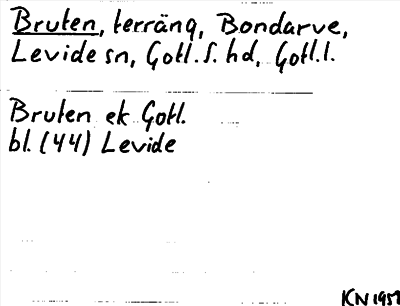 Bruten, terräng, Bondarve,
Levide sn, Gotl. S. hd, Gotl. l.
Bruten ek Gotl.
bl. (44) Levide
KN 1951